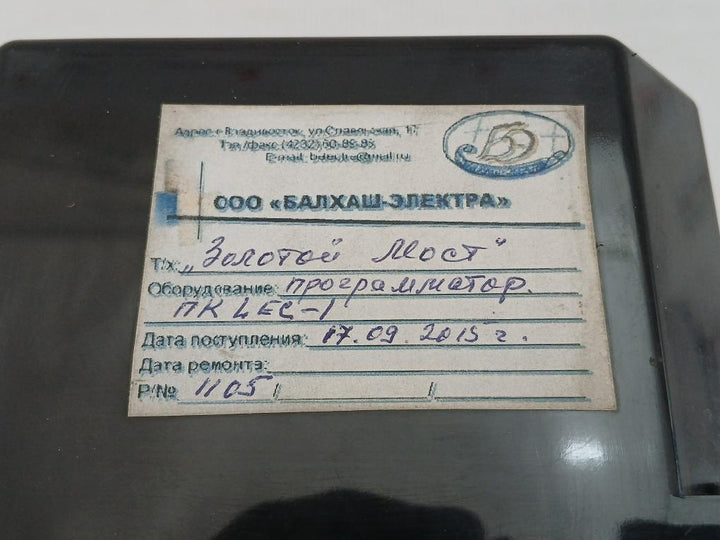 Адрес г Владивосток, ул Славянская, 17,
Тел /факс (4232)
E-mail
БЭ
ООО «БАЛХАШ-ЭЛЕКТРА»
Т/х: „Золотой Мост"
Оборудование: программатор.
ПК LEC-1
Дата поступления: 17.09.2015 г.
Дата ремонта:
Р/№ 1105 / /